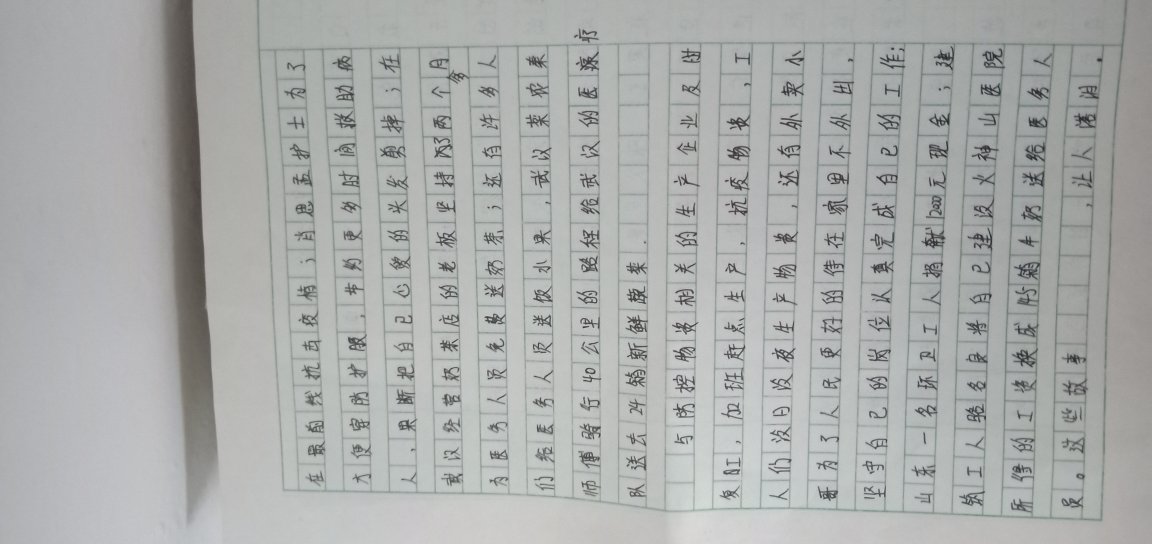 在最前线抗击疫情；肖思孟护士为了
方便穿防护服，节约更多时间救助病
人，果断把自己心爱的头发剪掉；在
武汉经营奶茶店的老板坚持了两个多月
为医务人员免费送奶茶；还有许多人
们给医务人员送饭水果，武汉菜农秦
师傅骑行40公里的路程给武汉的医疗
队送去24箱新鲜蔬菜．
与防控物资相关的生产企业及时
复工，加班赶点生产，抗疫物资，工
人们没日没夜生产物资，还有外卖小
哥为了人民更好的待在家里不外出，
坚守自己的岗位认真完成自己的工作；
山东一名环卫工人捐献12000元现金；建
筑工人骆名良将自己建设火神山医院
所得的工资换成45箱牛奶送给医务人
员。这些故事，让人潸泪．